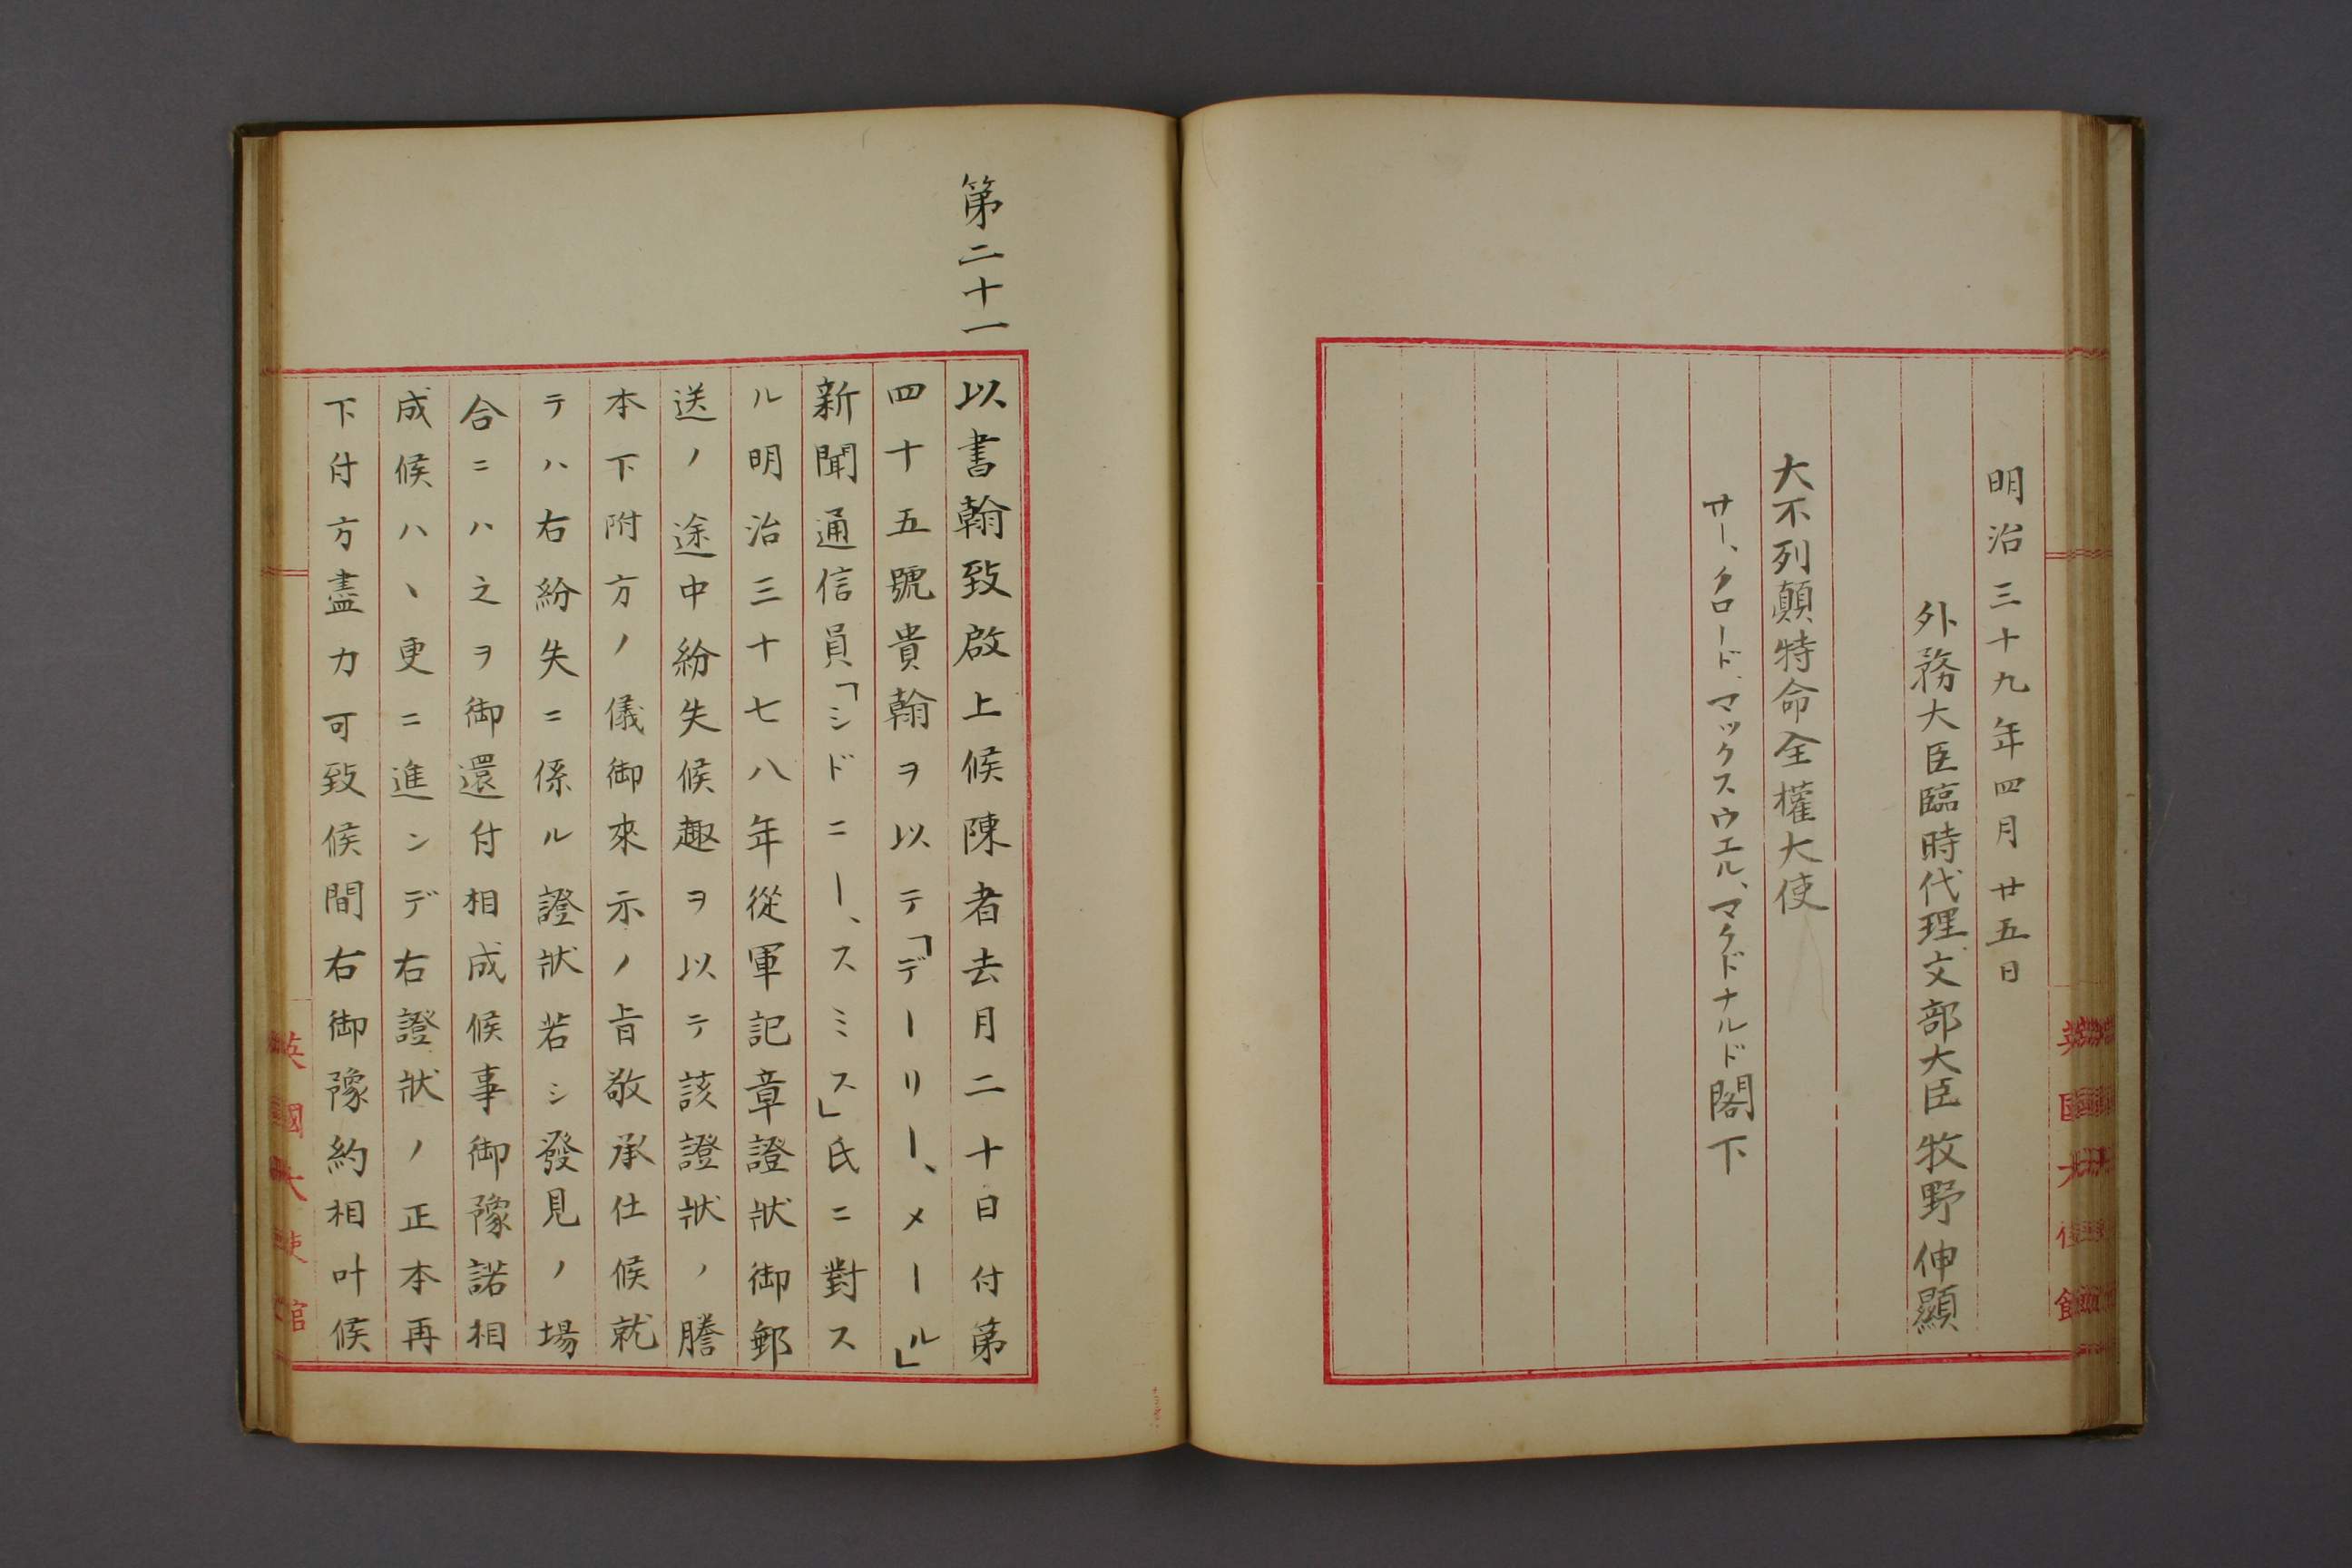 明治三十九年四月廿五日
外務大臣臨時代理文部大臣牧野伸顯
大不列顛特命全權大使
サー、クロード、マックスウエル、マクドナルド閣下
英國大使館
第二十一
以書翰致啟上候陳者去月二十日付第
四十五號貴翰ヲ以テ「デーリー、メール」
新聞通信員「シドニー、スミス」氏ニ對ス
ル明治三十七八年從軍記章證狀御郵
送ノ途中紛失候趣ヲ以テ該證狀ノ謄
本下附方ノ儀御來示ノ旨敬承仕候就
テハ右紛失ニ係ル證狀若シ發見ノ場
合ニハ之ヲ御還付相成候事御豫諾相
成候ハヽ更ニ進ンデ右證狀ノ正本再
下付方盡力可致候間右御豫約相叶候
英國大使館